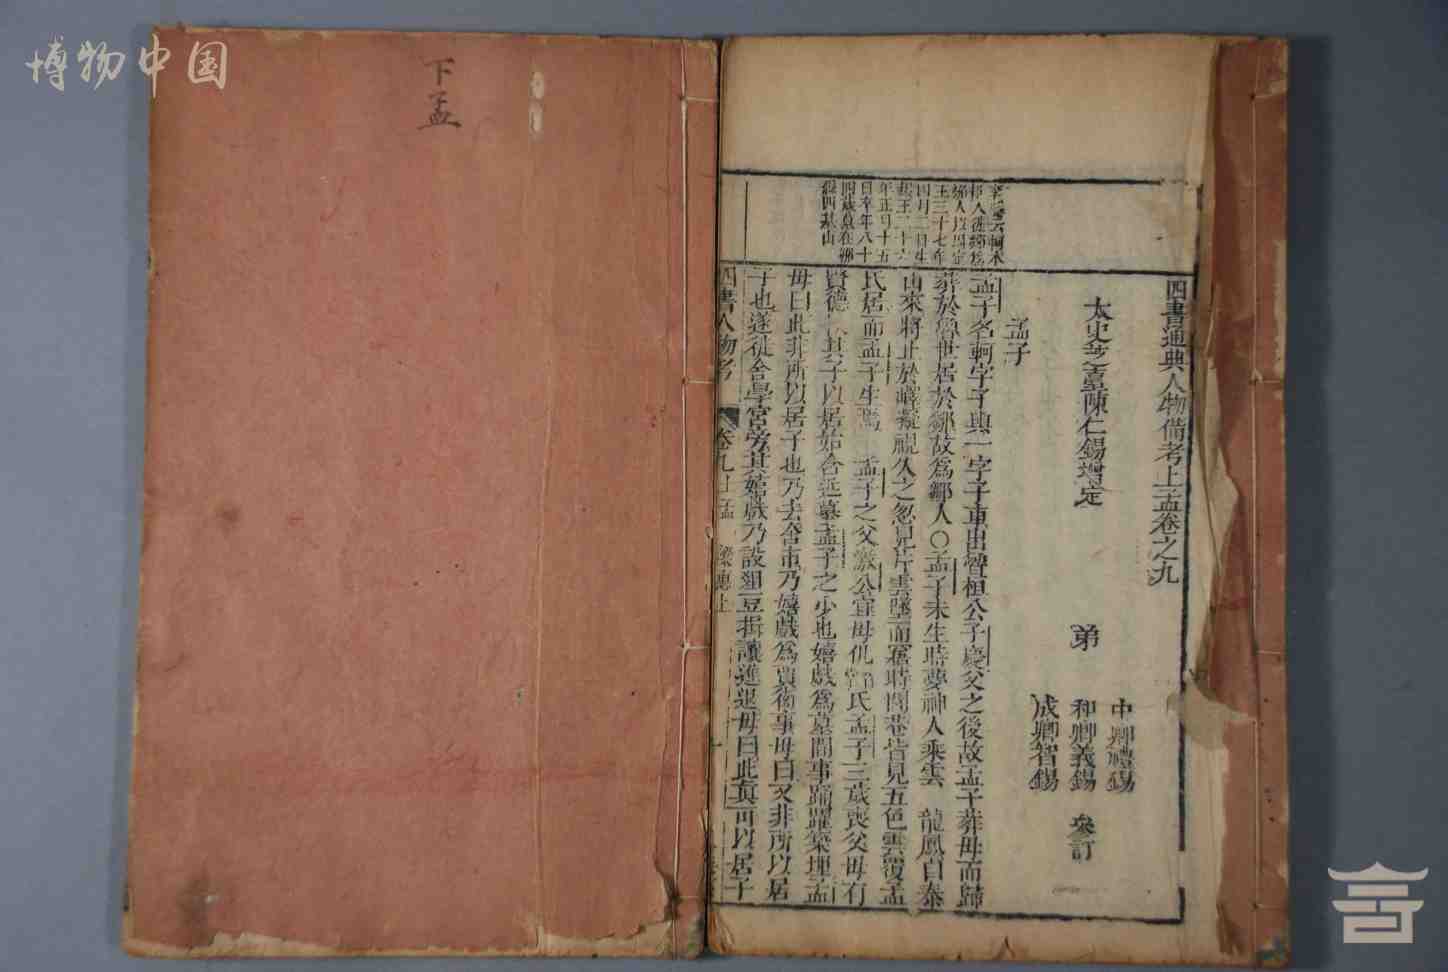 博物中国
下孟
四書通典人物備考上孟卷之九
太史芝臺陳仁錫增定
弟
中卿禮錫
和卿義錫
成卿智錫
叅訂
孟子
孟子名軻字子輿一字子車出魯桓公子慶父之後故孟子葬母而歸
葬於魯世居於鄒故爲鄒人〇孟子未生時夢神人乘雲 龍鳳自泰
山來將止於嶧凝視久之忽見片雲墜而寤時閭巷皆見五色雲覆孟
氏居而孟子生焉 孟子之父激公宜母仉 氏孟子三歲喪父母有
賢德 其子以居始舍近墓孟子之少也嬉戲爲墓間事踊躍築埋孟
母曰此非所以居子也乃去舍市乃嬉戲爲賈衒事母曰又非所以居
子也遂徙舍學宮旁其嬉戲乃設俎豆揖讓進退母曰此真可以居子
四書人物考 卷九上孟 梁惠上
人以周定
王三十七年
四月二日生
赧王二十六
年正月十五
日卒年八十
四歲墓在鄒
縣四基山